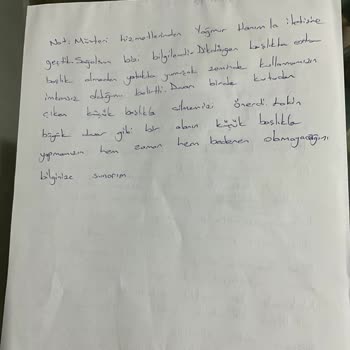 Not: Müşteri hizmetlerinden Yağmur Hanım'la iletişime
geçtik. Sağolsun bizi bilgilendirdi. başlıkla extra
başlık almadan yatakta yumuşak zeminde kullanmamızın
imkansız olduğunu belirtti. Duvarı bizde kutudan
çıkan küçük başlıkla silmemizi önerdi. Lakin
büyük duvar gibi bir alanın küçük başlıkla
yapmamızın hem zaman hem bedenen olamayacağını
bilginize sunarım.